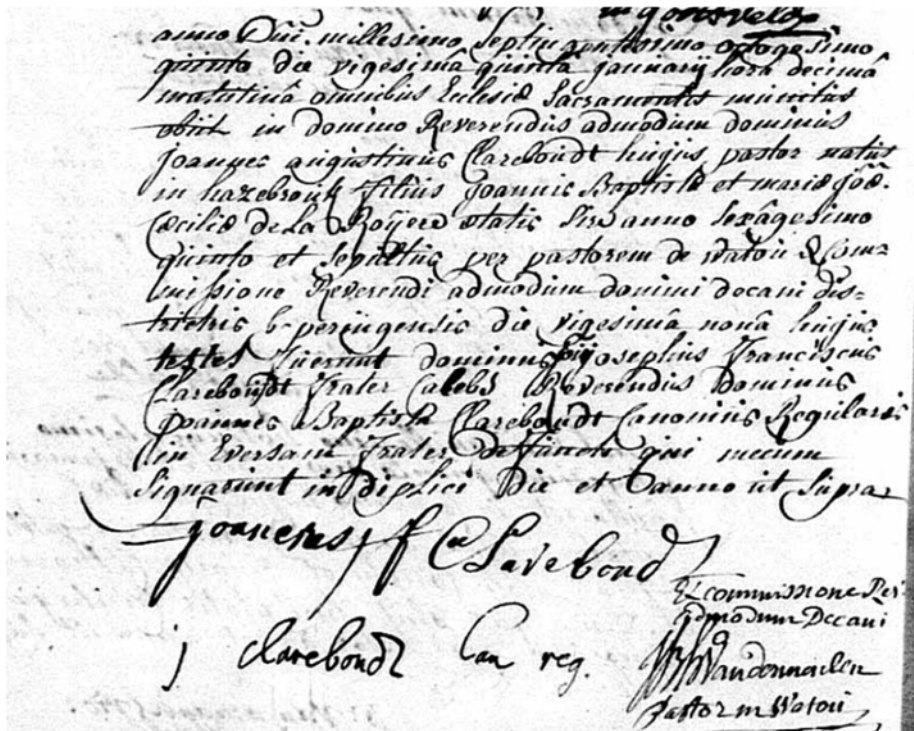 anno Dni. millesimo septingentesimo octogesimo
quinto die vigesima quintâ januarij horâ decimâ
matutinâ omnibus Eclesiæ Sacramentis munitus
obiit in domino Reverendus admodum dominus
joannes augustinus Clareboudt hujus pastor natus
in hazebrouk filius joannis Baptistæ et mariæ joæ.
Cæciliæ de La Royere ætatis suæ anno sexâgesimo
quinto et sepultus per pastorem de watou ex Com=
missione Reverendi admodum domini decani dis=
trictus b. poringensis die vigesimâ nonâ hujus
testes fuerunt dominus josephus franciscus
Clareboudt frater Cælebs Reverendus Dominus
joannes Baptista Clareboudt Canonicus Regularis
in Eversam frater deffuncti qui mecum
Signarunt in Duplici Die et anno ut Supra
Clareboud
j Clareboudt Can reg.
Ex commissione Rev
admodum Decani
Pastor in Watou